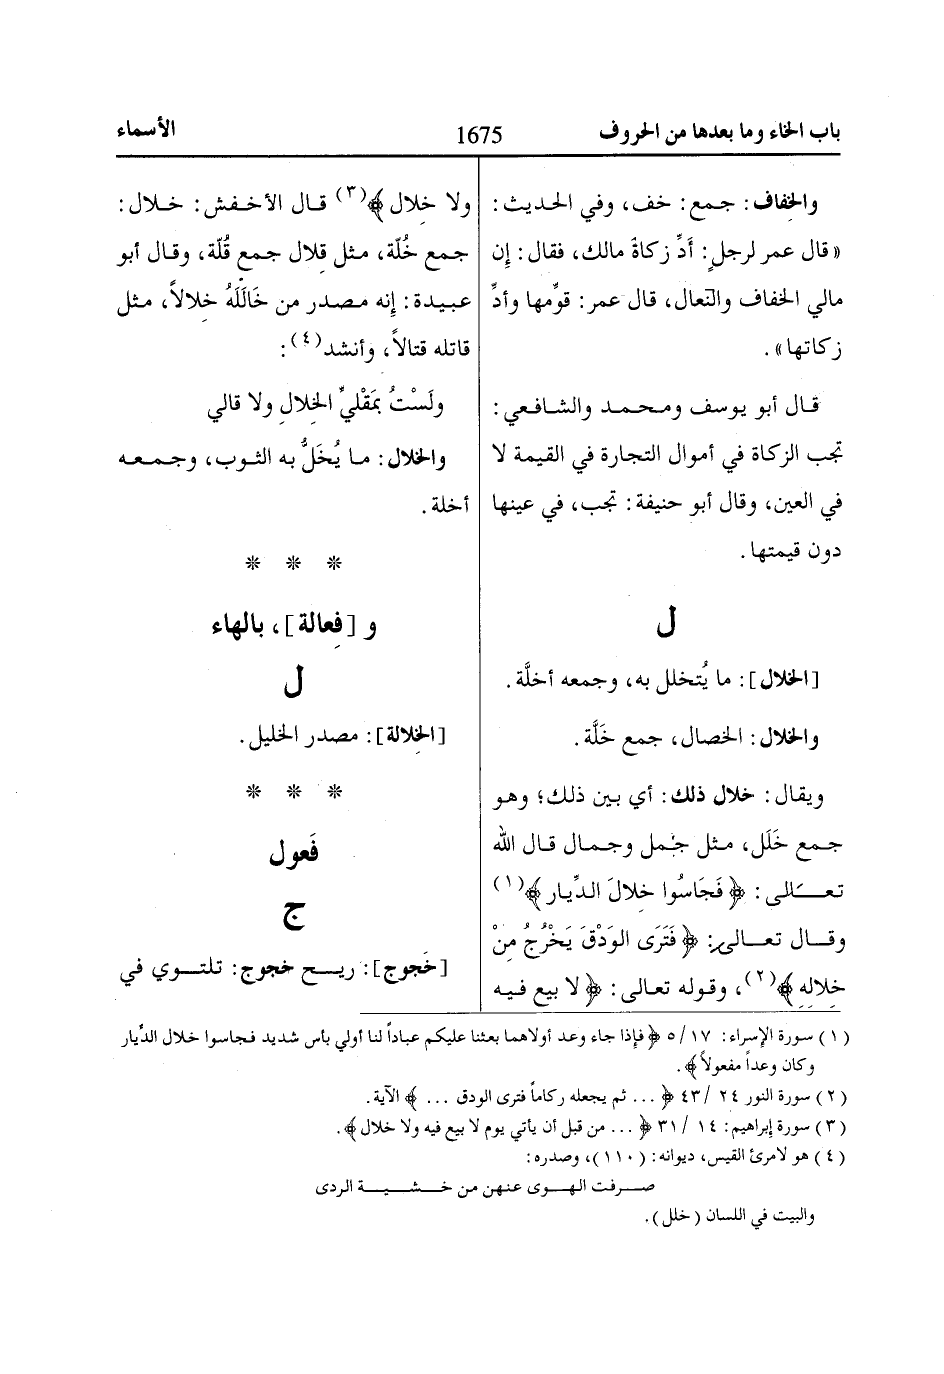 باب الخاء وما بعدها من الحروف
1675
الأسماء
والخِفاف: جمع: خف، وفي الحديث:
«قال عمر لرجلٍ: أَدِّ زكاةَ مالك، فقال: إِن
مالي الخفاف والنِّعال، قال عمر: قوِّمها وأدِّ
زكاتها».
قال أبو يوسف ومحمد والشافعي:
تجب الزكاة في أموال التجارة في القيمة لا
في العين، وقال أبو حنيفة: تجب، في عينها
دون قيمتها.
ل
[الخلال]: ما يُتخلل به، وجمعه أخلَّة.
والخِلال: الخصال، جمع خَلَّة.
ويقال: خلال ذلك: أي بين ذلك؛ وهو
جمع خَلَل، مثل جَمل وجمال قال الله
تعالى: ﴿فَجَاسُوا خِلالَ الدِّيار﴾(١)
وقال تعالى: ﴿فَتَرَى الوَدْقَ يَخْرُجُ مِنْ
خلاله﴾(٢)، وقوله تعالى: ﴿لا بيع فيه
ولا خلال﴾(٣) قال الأخفش: خلال:
جمع خُلّة، مثل قلال جمع قُلّة، وقال أبو
عبيدة: إِنه مصدر من خَالَلَهُ خِلالاً، مثل
قاتله قتالاً، وأنشد(٤):
ولَسْتُ بمَقْليِّ الخِلالِ ولا قالي
والخلال: ما يُخَلُّ به الثوب، وجمعه
أخلة.
* * *
و [فِعالة]، بالهاء
ل
[الخِلالة]: مصدر الخليل.
* * *
فَعول
ج
[خَجوج]: ريح خجوج: تلتوي في
(١) سورة الإسراء: ١٧ /٥ ﴿فإذا جاء وعد أولاهما بعثنا عليكم عباداً لنا أولي بأس شديد فجاسوا خلال الدِّيار
وكان وعداً مفعولاً﴾.
(٢) سورة النور ٢٤ /٤٣ ﴿... ثم يجعله ركاماً فترى الودق ...﴾ الآية.
(٣) سورة إبراهيم: ١٤ /٣١ ﴿... من قبل أن يأتي يوم لا بيع فيه ولا خلال﴾.
(٤) هو لامرئ القيس، ديوانه: (١١٠)، وصدره:
صرفت الهوى عنهن من خشية الردى
والبيت في اللسان (خلل).